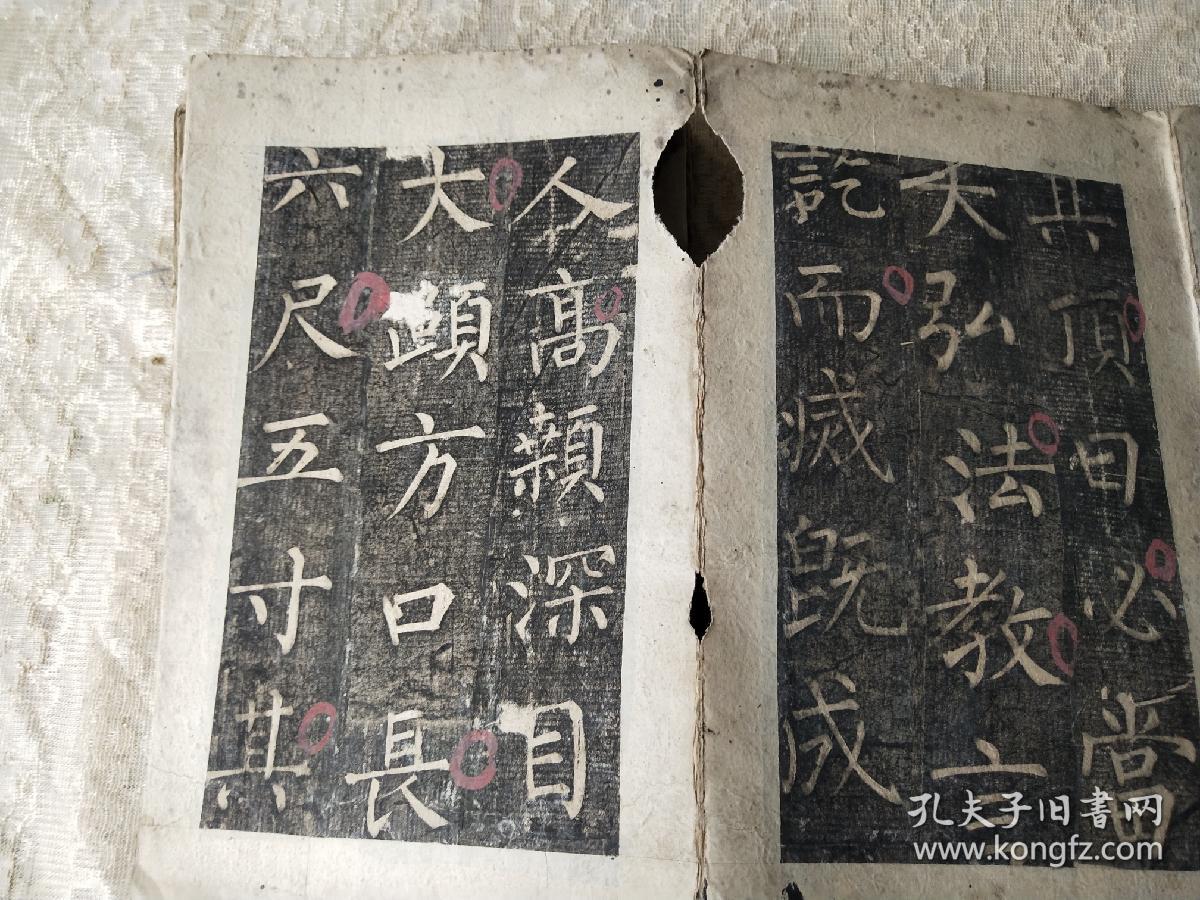 其頂曰必當
大弘法教言
訖而滅既成
人高顙深目
大頤方口長
六尺五寸其
孔夫子旧书网
www.kongfz.com